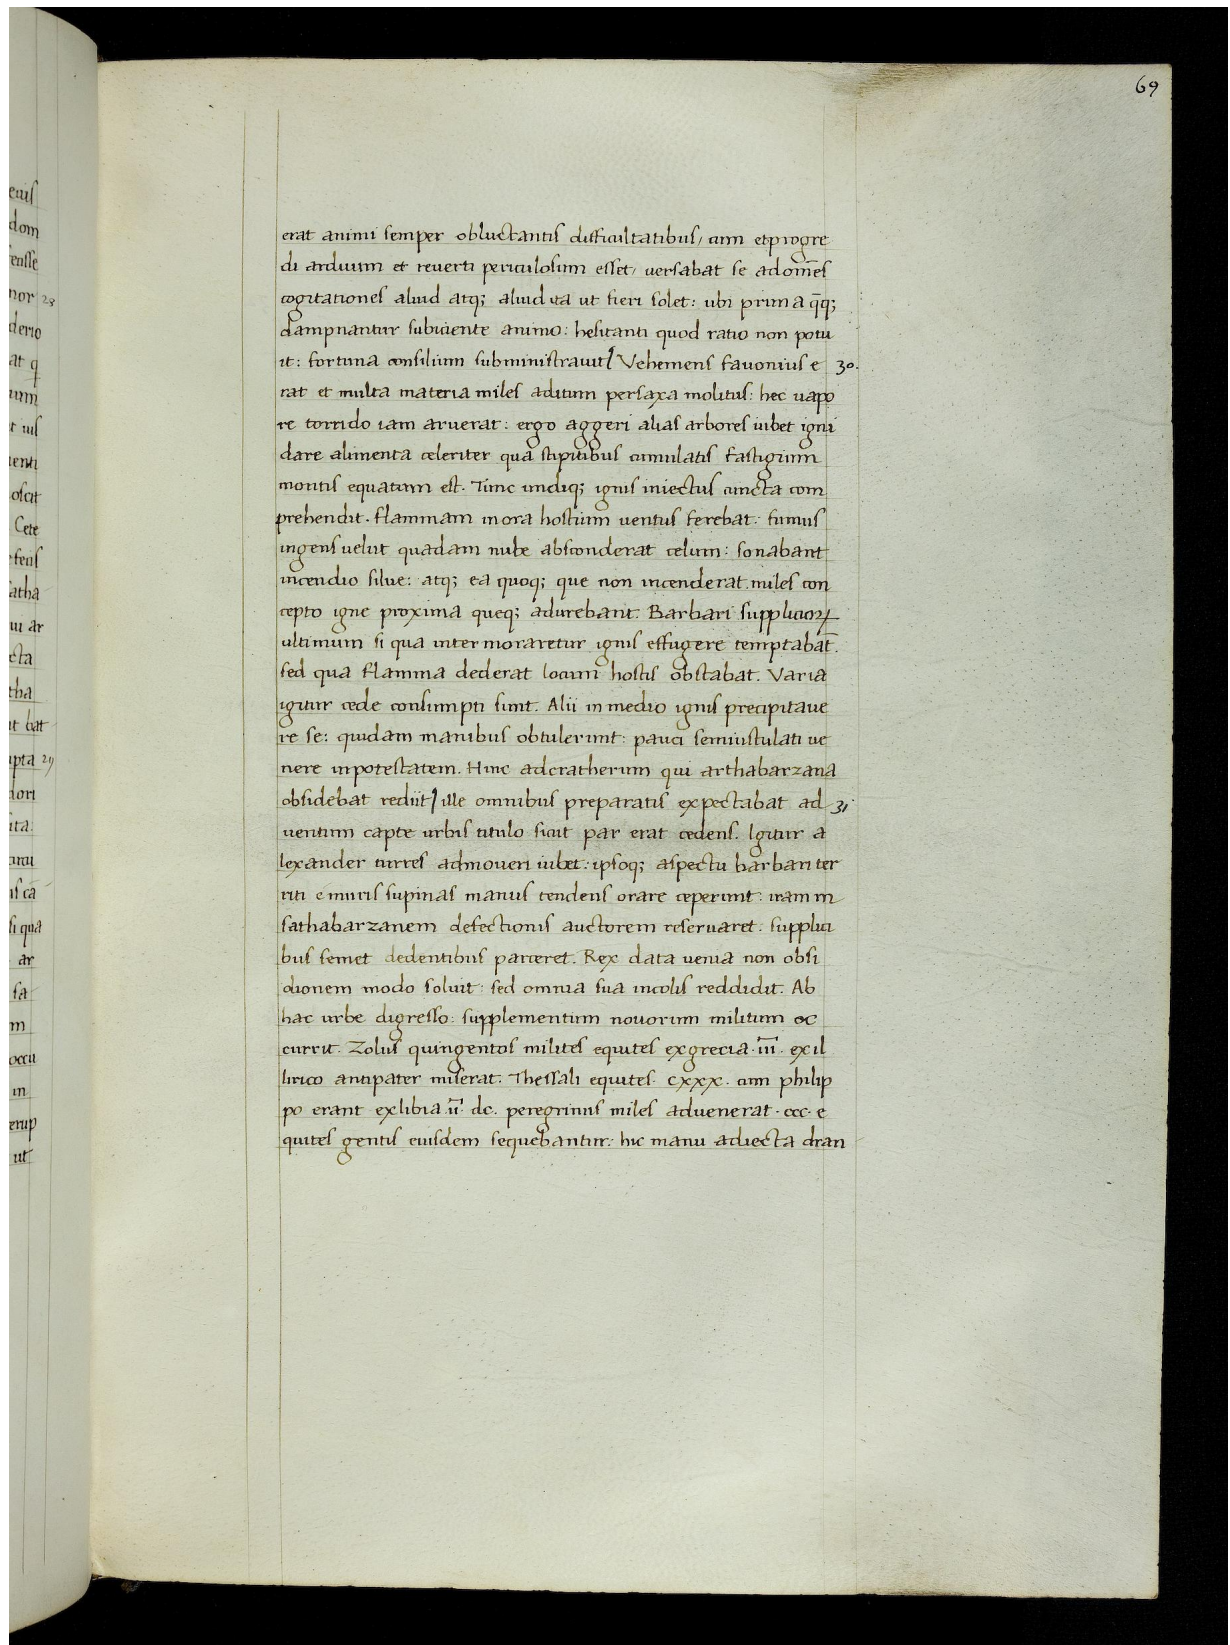 69
erat animi semper obluctantis difficultatibus, cum et progre
di arduum et reverti periculosum esset, versabat se ad om̄es
cogitationes aliud atq; aliud ita ut fieri solet: ubi prima q̄q;
dampnantur subiciente animo: hesitanti quod ratio non potu
it: fortuna consilium subministravit Vehemens favonius e 30.
rat et multa materia miles aditum per saxa molitus: hec uapo
re torrido iam aruerat: ergo aggeri alias arbores iubet igni
dare alimenta celeriter qua stipitibus cumulatis fastigium
montis equatum est. Tunc undiq; ignis iniectus cuncta com
prehendit. flammam in ora hostium uentus ferebat: fumus
ingens uelut quadam nube absconderat celum: sonabant
incendio silue: atq; ea quoq; que non incenderat miles con
cepto igne proxima queq; adurebant. Barbari suppliciorꝝ
ultimum si qua inter moraretur ignis effugere temptabāt.
sed qua flamma dederat locum hostis obstabat. Varia
igitur cede consumpti sunt. Alii in medio ignis precipitaue
re se: quidam manibus obtulerunt: pauci semiustulati ue
nere in potestatem. Hinc ad cratherum qui arthabarzana
obsidebat rediit ille omnibus preparatis expectabat ad 31
uentum capte urbis titulo sicut par erat cedens. Igitur a
lexander turres admoueri iubet: ipsoq; aspectu barbari ter
riti e muris supinas manus tendens orare ceperunt: iram in
sathabarzanem defectionis auctorem reseruaret: supplici
bus semet dedentibus parceret. Rex data uenia non obsi
dionem modo soluit: sed omnia sua incolis reddidit. Ab
hac urbe digresso: supplementum nouorum militum oc
currit. Zolus quingentos milites equites ex grecia .iii̅. ex il
lirico antipater miserat. Thessali equites. cxxx. cum philip
po erant ex libia .ii̅. dc. peregrinus miles aduenerat .ccc. e
quites gentis eiusdem sequebantur: hic manu adiecta dran